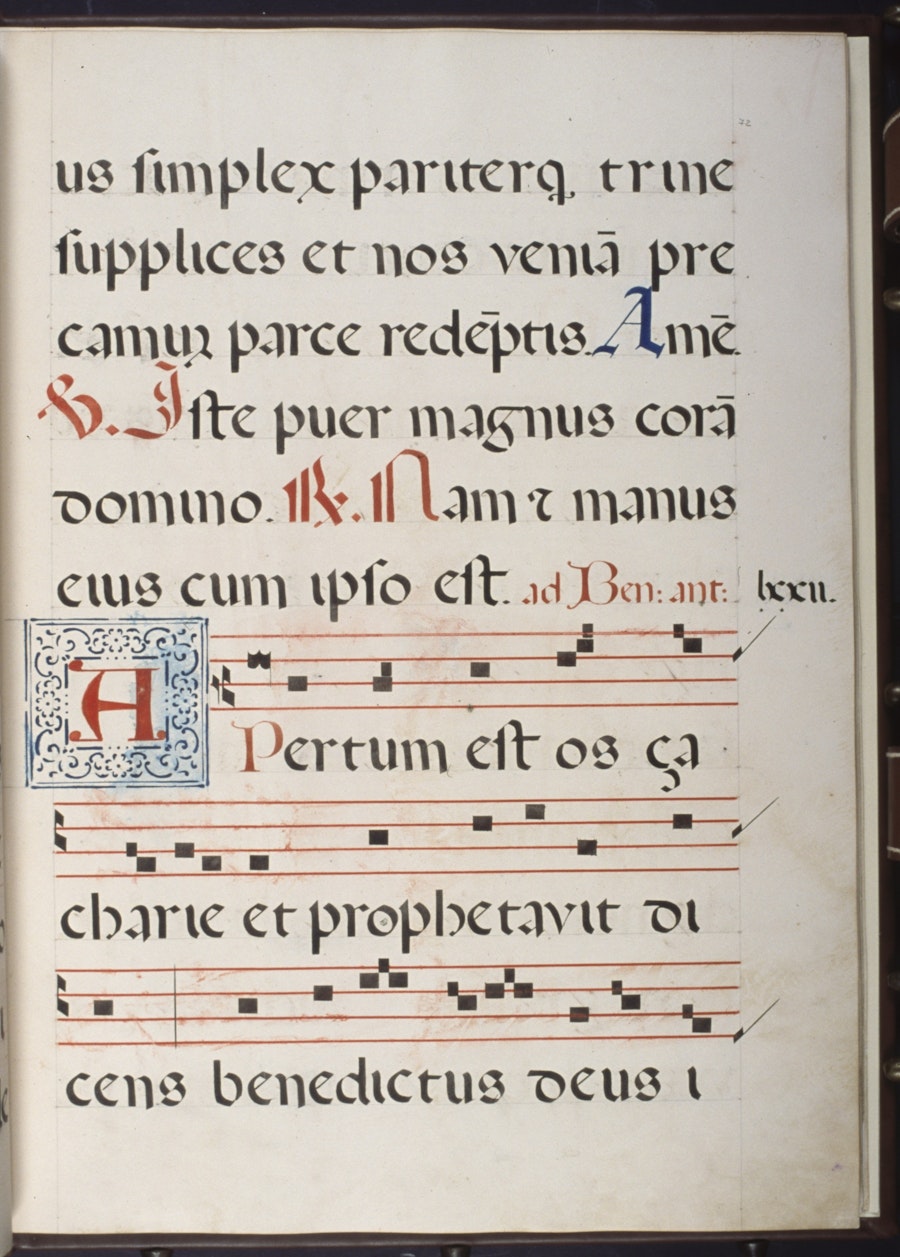 72
us simplex pariterq, trine
supplices et nos veniā pre
camuꝝ parce redēptis. Amē.
℣. Iste puer magnus corā
domino. ℟. Nam ⁊ manus
eius cum ipso est. ad Ben: ant: lxxii.
APertum est os ça
charie et prophetavit di
cens benedictus deus i